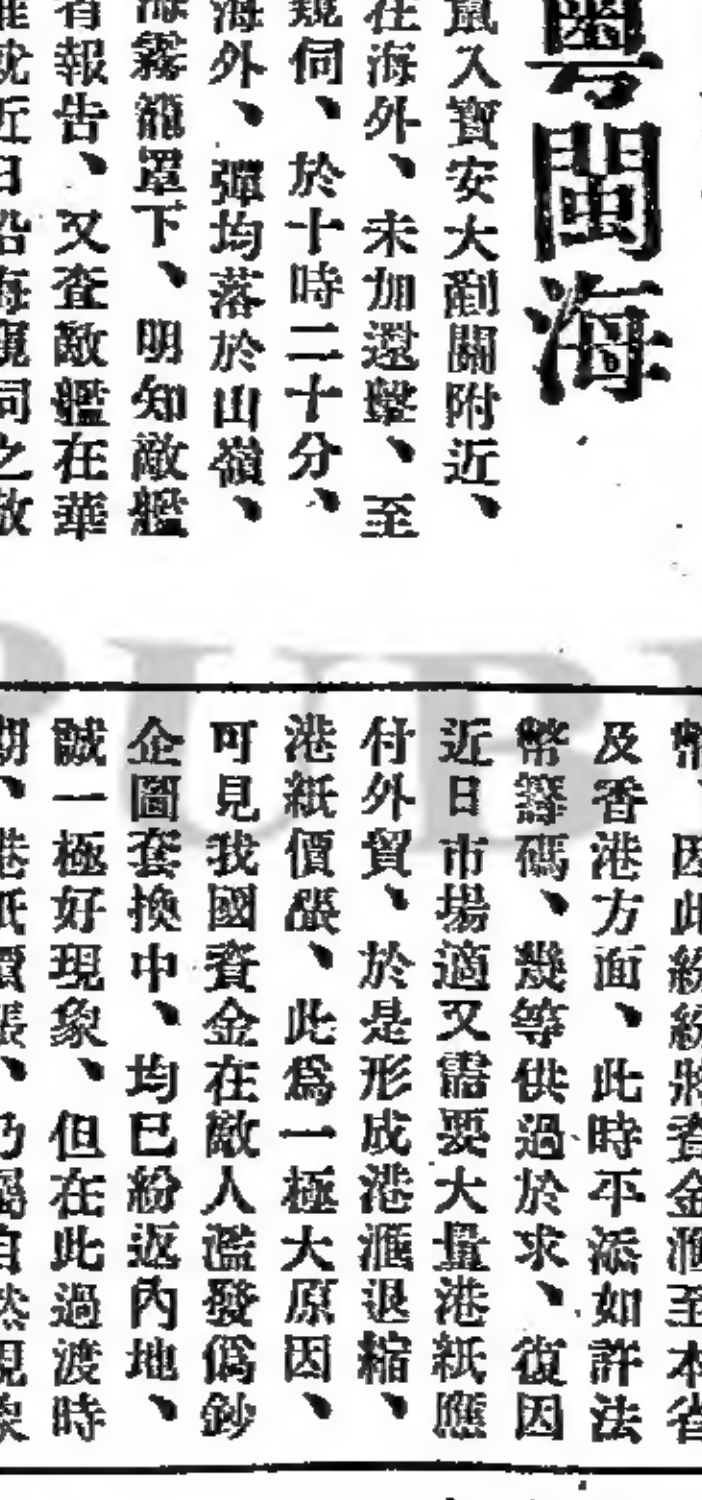 粵閩海
鼠入寶安大剷關附近、
在海外、未加還擊、至
窺伺、於十時二十分、
海外、彈均落於山嶺、
海霧籠罩下、明知敵艦
有報告、又查敵艦在華
近日沿海窺伺之敵
幣、因此紛紛將資金匯至本省
及香港方面、此時平添如許法
幣籌碼、幾等供過於求、復因
近日市場適又需要大量港紙應
付外貿、於是形成港滙退縮、
港紙價漲、此爲一極大原因、
可見我國資金在敵人濫發僞鈔
企圖套換中、均已紛返內地、
誠一極好現象、但在此過渡時
期、港紙價漲、乃屬自然現象